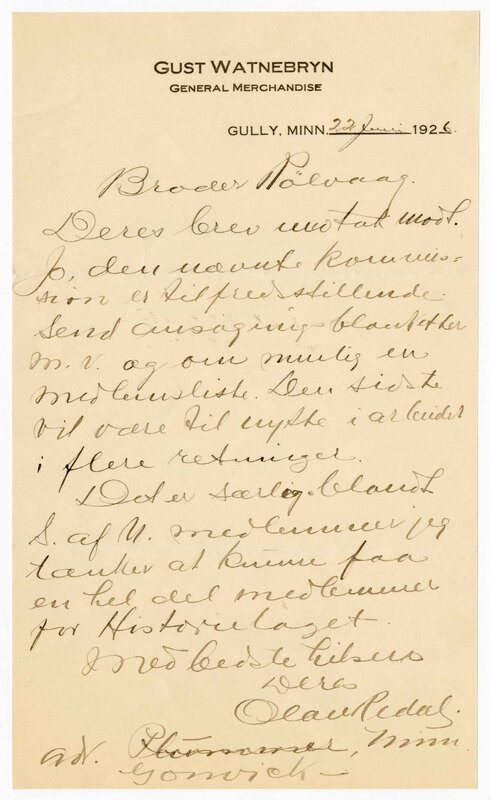 GUST WATNEBRYN
GENERAL MERCHANDISE
GULLY, MINN. 22 Juni 1926.
Broder Rölvaag.
Deres brev mottat modt.
Jo, den nævnte kommis-
sion er tilfredsstillende
Send ansøgningsblanketter
m. v. og om mulig en
medlemsliste. Den sidste
vil være til nytte i arbeidet
i flere retninger.
Det er særlig blandt
S. af N. medlemmer jeg
tænker at kunne faa
en hel del medlemmer
for Historielaget.
Med bedste hilsen
Deres
Olav Redal.
adr. Plummer, Minn.
Gonvick